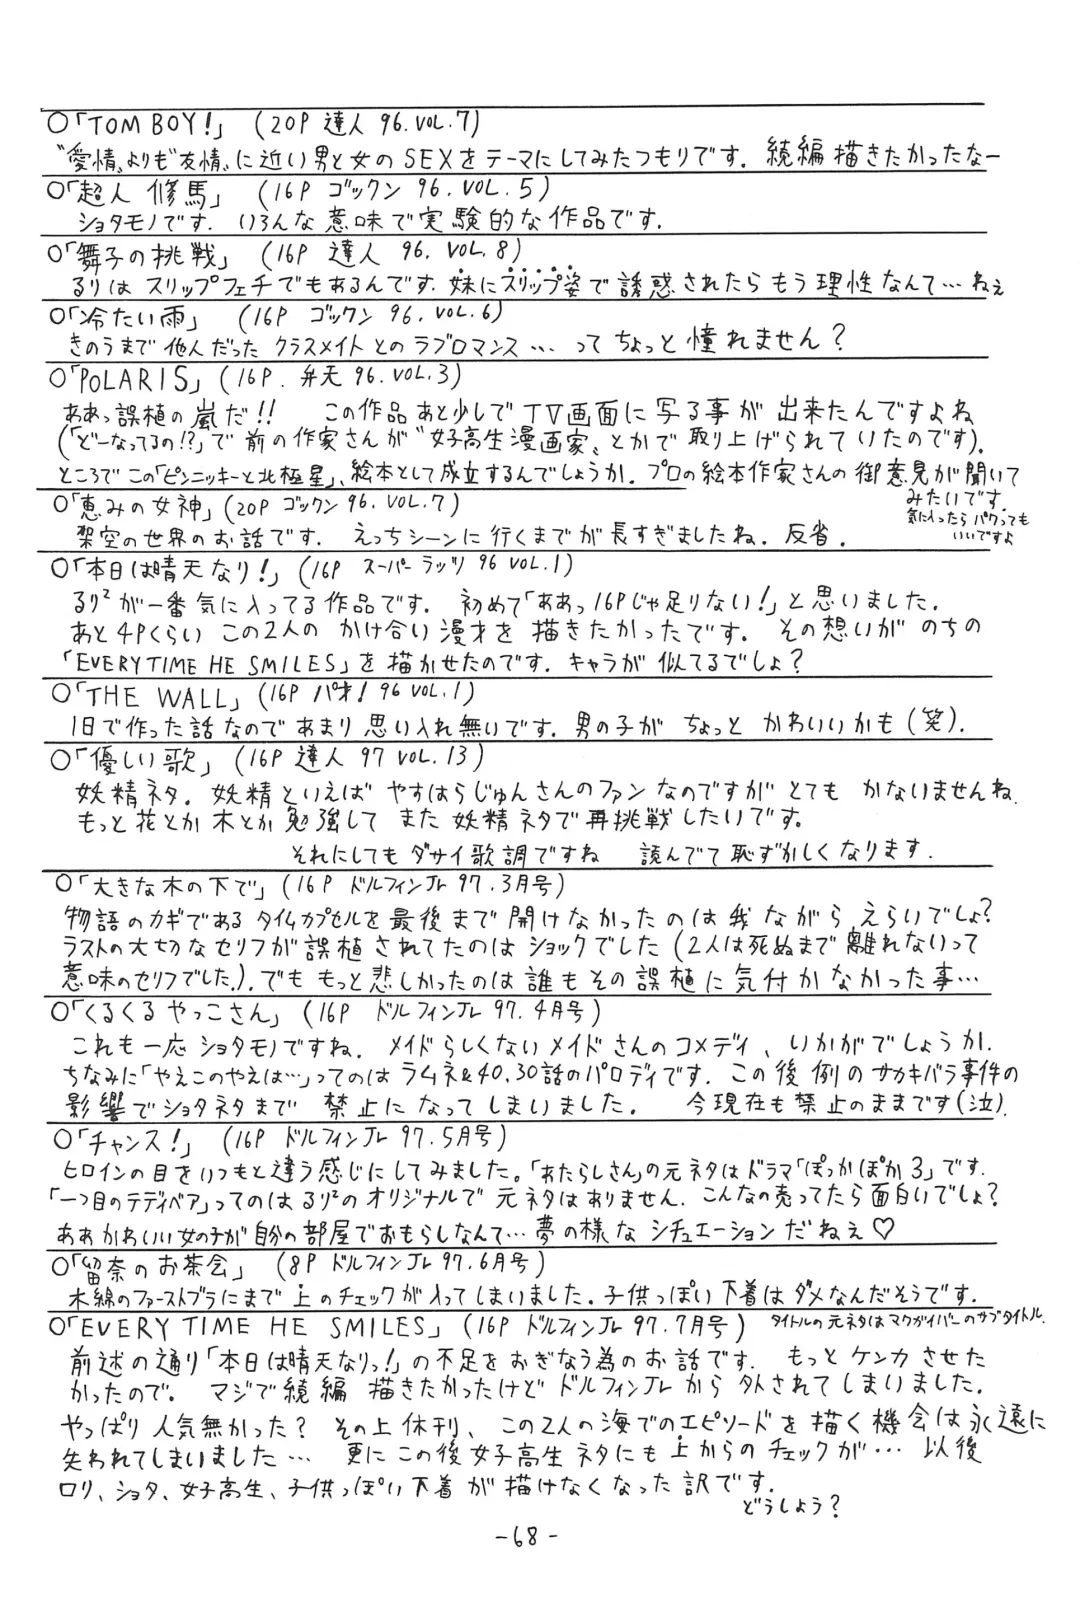 ○「TOM BOY!」 (20P 達人 96. VOL. 7)
〝愛情〟よりも〝友情〟に近い男と女のSEXをテーマにしてみたつもりです。続編描きたかったなー
○「超人 修馬」 (16P ゴックン 96. VOL. 5)
ショタモノです. いろんな意味で実験的な作品です.
○「舞子の挑戦」 (16P 達人 96. VOL. 8)
るりはスリップフェチでもあるんです. 妹にスリップ姿で誘惑されたらもう理性なんて… ねぇ
○「冷たい雨」 (16P ゴックン 96. VOL. 6)
きのうまで他人だったクラスメイトとのラブロマンス… ってちょっと憧れません?
○「POLARIS」(16P. 弁天 96. VOL. 3)
ああっ誤植の嵐だ!! この作品あと少しでTV画面に写る事が出来たんですよね
(「どーなってるの!?」で前の作家さんが〝女子高生漫画家〟とかで取り上げられていたのです).
ところでこの「ピンニッキーと北極星」、絵本として成立するんでしょうか. プロの絵本作家さんの御意見が聞いて
みたいです.
気に入ったらパクっても
いいですよ
○「恵みの女神」(20P ゴックン 96. VOL. 7)
架空の世界のお話です. えっちシーンに行くまでが長すぎましたね. 反省.
○「本日は晴天なり!」(16P スーパーラッツ 96 VOL. 1)
るり²が一番気に入ってる作品です. 初めて「ああっ16Pじゃ足りない!」と思いました.
あと4Pくらいこの2人のかけ合い漫才を描きたかったです. その想いがのちの
「EVERY TIME HE SMILES」を描かせたのです. キャラが似てるでしょ?
○「THE WALL」(16P パオ! 96 VOL. 1)
1日で作った話なのであまり思い入れ無いです. 男の子がちょっとかわいいかも(笑).
○「優しい歌」(16P 達人 97 VOL. 13)
妖精ネタ. 妖精といえばやすはらじゅんさんのファンなのですがとてもかないませんね.
もっと花とか木とか勉強してまた妖精ネタで再挑戦したいです。
それにしてもダサイ歌調ですね 読んでて恥ずかしくなります.
○「大きな木の下で」(16P ドルフィンJr 97. 3月号)
物語のカギであるタイムカプセルを最後まで開けなかったのは我ながらえらいでしょ?
ラストの大切なセリフが誤植されてたのはショックでした(2人は死ぬまで離れないって
意味のセリフでした.). でももっと悲しかったのは誰もその誤植に気付かなかった事…
○「くるくるやっこさん」(16P ドルフィンJr 97. 4月号)
これも一応ショタモノですね. メイドらしくないメイドさんのコメディ、いかがでしょうか.
ちなみに「やえこのやえは…」ってのはラムネ&40. 30話のパロディです. この後例のサカキバラ事件の
影響でショタネタまで禁止になってしまいました. 今現在も禁止のままです(泣).
○「チャンス!」 (16P ドルフィンJr 97. 5月号)
ヒロインの目をいつもと違う感じにしてみました。「あたらしさん」の元ネタはドラマ「ぽっかぽか3」です.
「一つ目のテディベア」ってのはるり²のオリジナルで元ネタはありません. こんなの売ってたら面白いでしょ?
ああかわいい女の子が自分の部屋でおもらしなんて… 夢の様なシチュエーションだねぇ♡
○「留奈のお茶会」 (8P ドルフィンJr 97. 6月号)
木綿のファーストブラにまで上のチェックが入ってしまいました. 子供っぽい下着はダメなんだそうです.
○「EVERY TIME HE SMILES」(16P ドルフィンJr 97. 7月号) タイトルの元ネタはマクガイバーのサブタイトル.
前述の通り「本日は晴天なりっ!」の不足をおぎなう為のお話です. もっとケンカさせた
かったので。 マジで続編描きたかったけどドルフィンJrから外されてしまいました.
やっぱり人気無かった? その上休刊、この2人の海でのエピソードを描く機会は永遠に
失われてしまいました… 更にこの後女子高生ネタにも上からのチェックが… 以後
ロリ、ショタ、女子高生、子供っぽい下着が描けなくなった訳です.
どうしよう?
-68-